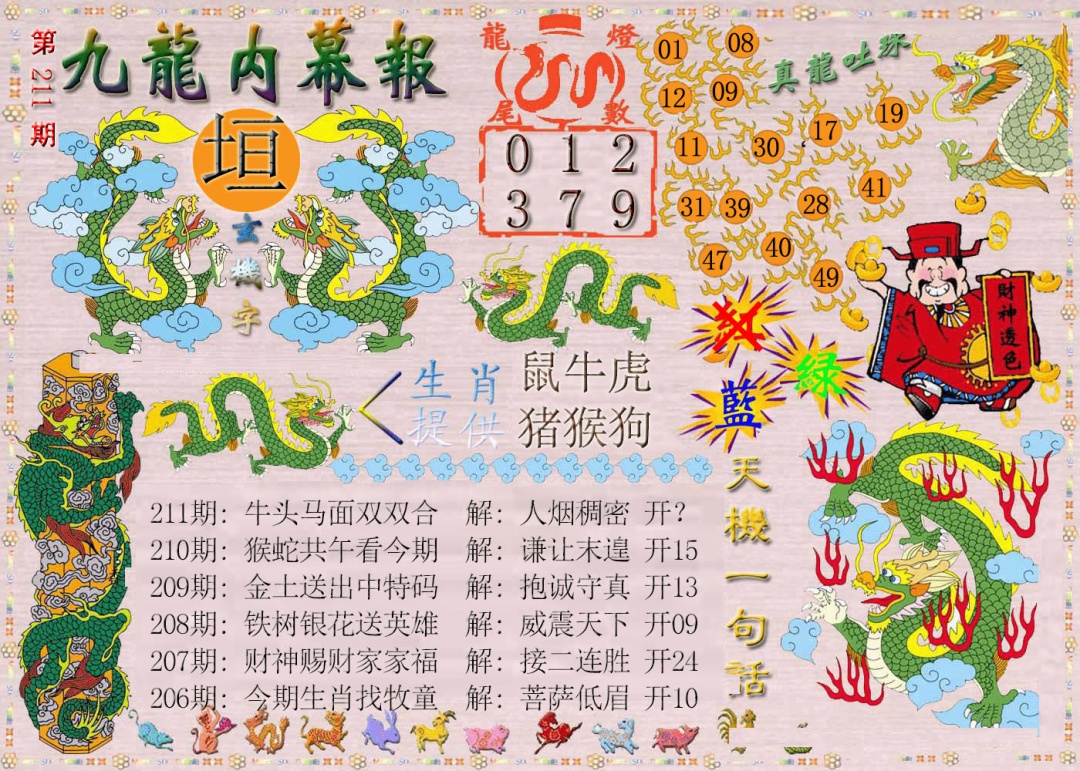 第211期
九龍内幕報
垣
玄機字
龍燈
尾數
0 1 2
3 7 9
真龍吐珠
01 08
12 09
11 30 17 19
31 39 28 41
47 40 49
財神透色
紅
綠
藍
生肖
提供
鼠牛虎
猪猴狗
天機一句話
211期：牛头马面双双合 解：人烟稠密 开？
210期：猴蛇共午看今期 解：谦让末遑 开15
209期：金土送出中特码 解：抱诚守真 开13
208期：铁树银花送英雄 解：威震天下 开09
207期：财神赐财家家福 解：接二连胜 开24
206期：今期生肖找牧童 解：菩萨低眉 开10